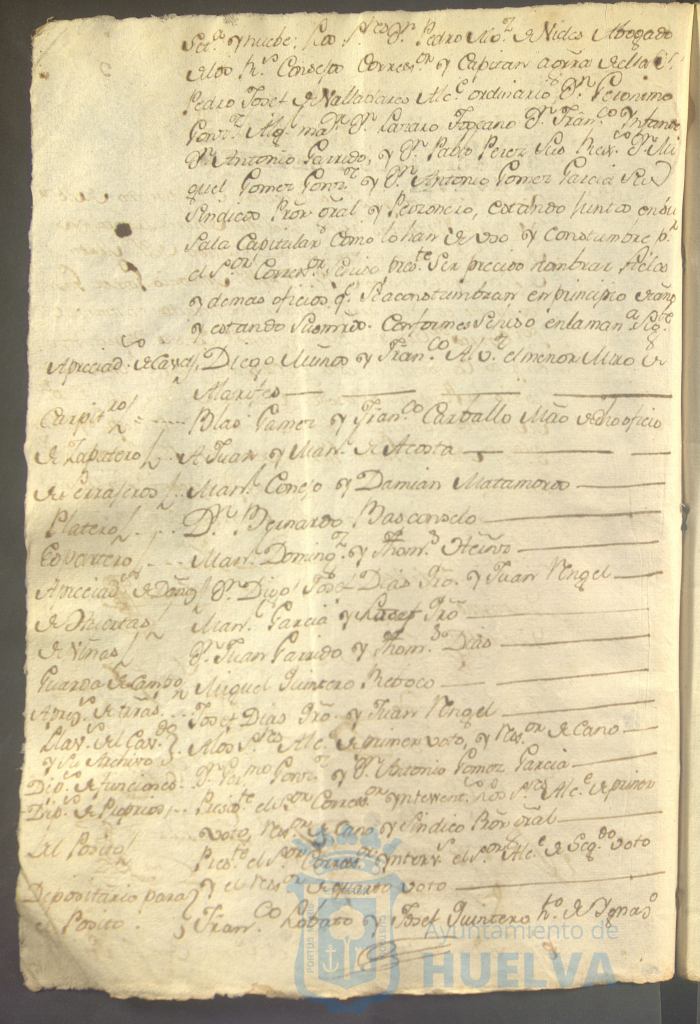 y nuebe: Los S.res D.n Pedro de Nieles Abogado
de los R.s Consejos Corres.or y Capitan a grã de ella D.n
Pedro Josef de Valladares Alc.e ordinario D.n Geronimo
D.n Lazaro D.n Fran.co Infante
D.n Antonio Garrido, y D.n Pablo Perez Sus Rex.s D.n Mi
guel Gomez Gonz.z y D.n Antonio Gomez Garcia Sus
Sindicos Prõr gral y Personero, estando juntos en su
Sala Capitular como lo han de uso y constumbre p.r
el S.or Corres.or se hiso pres.te Ser preciso nombrar Fieles
y demas oficios q.e se aconstumbran en principio de año
y estando Sus mrds. Conformes se hiso en la man.a Sig.te
Apreciad.s de Casas, Diego Muños y Fran.co el menor Mrõs de
Alarifes
Carpit.ros Blas Gamez y Fran.co Carballo Mrõs de dho oficio
de Zapatero A Juan y Man.l de Acosta
de Serrajeros Man.l Conejo y Damian Matamoros
Platero D.n Bernardo Basconselo
Man.l Doming.z y Thom.s
Apreciad.s de Daños D.n Diego Josef Dias Prõ. y Juan Rengel
de Huertas Man.l Garcia y Josef Prõ
de Viñas D.n Juan Garrido y Thom.s Dias
Guarda de Campo Miguel Quintero Reboco
Aprec.s de trãs. Josef Dias Prõ. y Juan Rengel
Llav.s del Cav.do A los S.res Alc.e de primer voto, y Rex.or de Cano
y de Archivo
Dip.s de funciones D.n Ger.mo Gonz.z y D.n Antonio Gomez Garcia
Dip.s de Propios Presid.te el S.or Corres.or y Interven.t los S.res Alc.e de primer
voto, Rex.or de Cano y Sindico Prõr gral
Del Posito Pres.te el S.or Corres.or Interv.s el S.or Alc.e de Seg.do voto
y el Rex.or de quarto voto
Depositario para
el Posito. Fran.co Lobato y Josef Quintero h.o de Ygnas.o
Ayuntamiento de
HUELVA